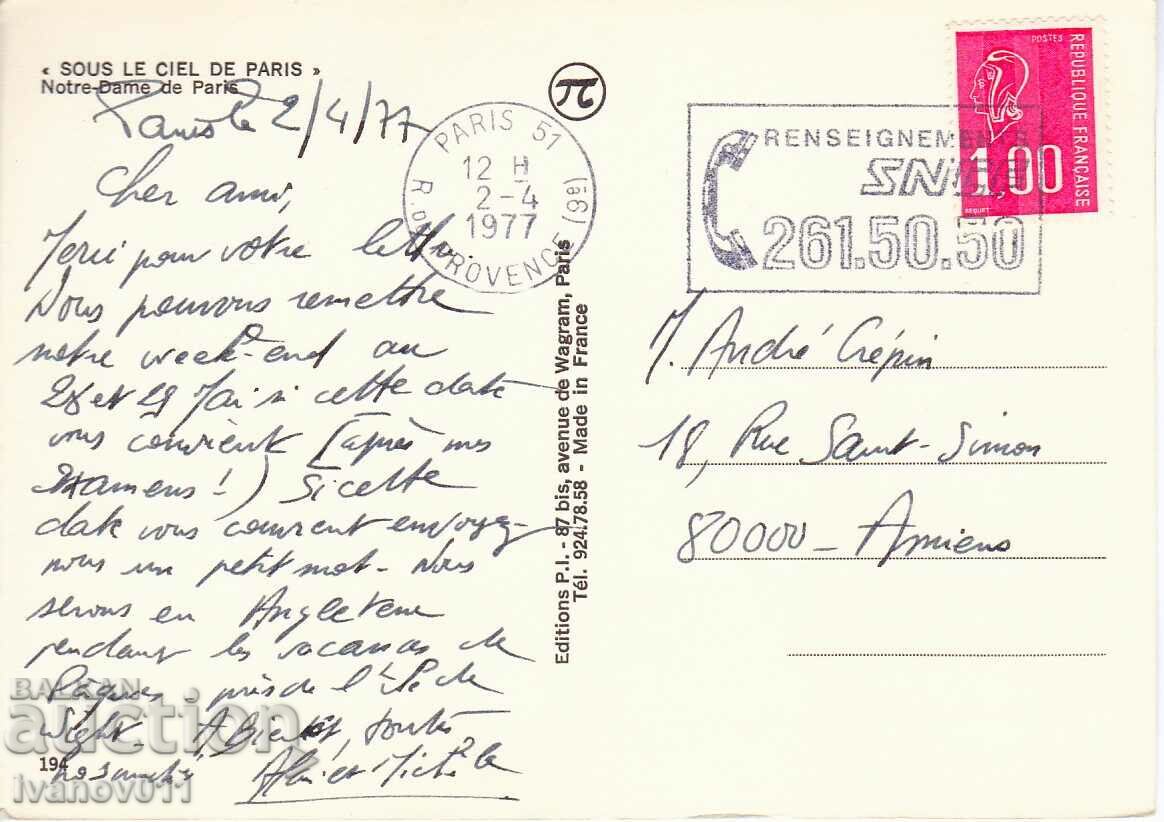 « SOUS LE CIEL DE PARIS »
Notre-Dame de Paris
Paris le 2/4/77
Cher ami,
Merci pour votre lettre.
Nous pouvons remettre
notre week-end au
28 et 29 Mai si cette date
vous convient (après mes
Examens !) Si cette
date vous convient envoyez-
nous un petit mot - Nous
serons en Angleterre
pendant les vacances de
Pâques - près de l'île de
Wight - A Bientôt, toutes
nos amitiés
194
PARIS 51
12 H
2-4
1977
R. DE PROVENCE (9e)
RENSEIGNEMENTS
SNCF
261.50.50
POSTES
REPUBLIQUE FRANÇAISE
1,00
BEQUET
Editions P.I. - 87 bis, avenue de Wagram, Paris
Tél. 924.78.58 - Made in France
M. André Crépin
18, Rue Saint-Simon
80000 - Amiens
BALKAN
auction
ivanov011